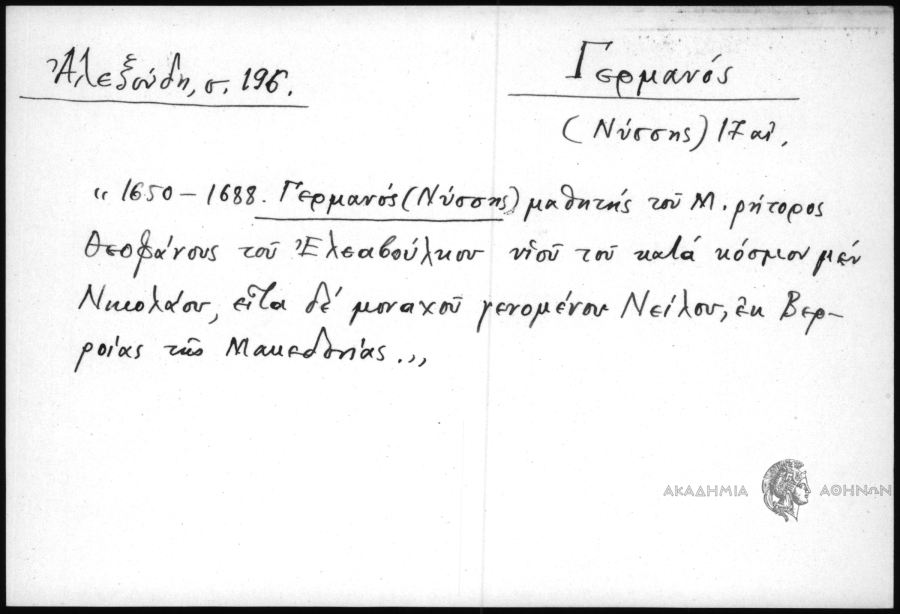 Ἀλεξούδη, σ. 196.
Γερμανός
(Νύσσης) 17 αἰ.
“ 1650 – 1688. Γερμανός (Νύσσης) μαθητής τοῦ Μ. ρήτορος
Θεοφάνους τοῦ Ἐλεαβούλκου υἱοῦ τοῦ κατά κόσμον μέν
Νικολάου, εἶτα δέ μοναχοῦ γενομένου Νείλου, ἐκ Βερ–
ροίας τῆς Μακεδονίας.,,
ΑΚΑΔΗΜΙΑ ΑΘΗΝΩΝ